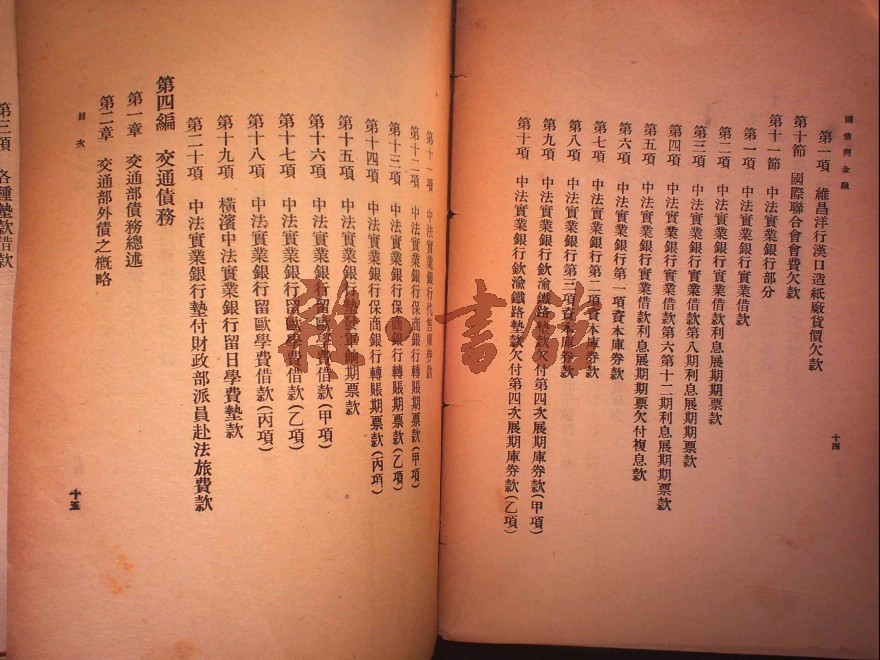 國債與金融
第一項 維昌洋行漢口造紙廠貨價欠款
第十節 國際聯合會會費欠款
第十一節 中法實業銀行部分
第一項 中法實業銀行實業借款
第二項 中法實業銀行實業借款利息展期期票款
第三項 中法實業銀行實業借款第八期利息展期期票款
第四項 中法實業銀行實業借款第六第十二期利息展期期票款
第五項 中法實業銀行實業借款利息展期期票欠付複息款
第六項 中法實業銀行第一項資本庫券款
第七項 中法實業銀行第二項資本庫券款
第八項 中法實業銀行第三項資本庫券款
第九項 中法實業銀行欽渝鐵路墊款欠付第四次展期庫券款(甲項)
第十項 中法實業銀行欽渝鐵路墊款欠付第四次展期庫券款(乙項)
十四
第十一項 中法實業銀行代售庫券款
第十二項 中法實業銀行保商銀行轉賬期票款(甲項)
第十三項 中法實業銀行保商銀行轉賬期票款(乙項)
第十四項 中法實業銀行保商銀行轉賬期票款(丙項)
第十五項 中法實業銀行墊發軍餉期票款
第十六項 中法實業銀行留歐學費借款(甲項)
第十七項 中法實業銀行留歐學費借款(乙項)
第十八項 中法實業銀行留歐學費借款(丙項)
第十九項 橫濱中法實業銀行留日學費墊款
第二十項 中法實業銀行墊付財政部派員赴法旅費款
第四編 交通債務
第一章 交通部債務總述
第二章 交通部外債之概略
目次
十五
第三項 各種墊款借款